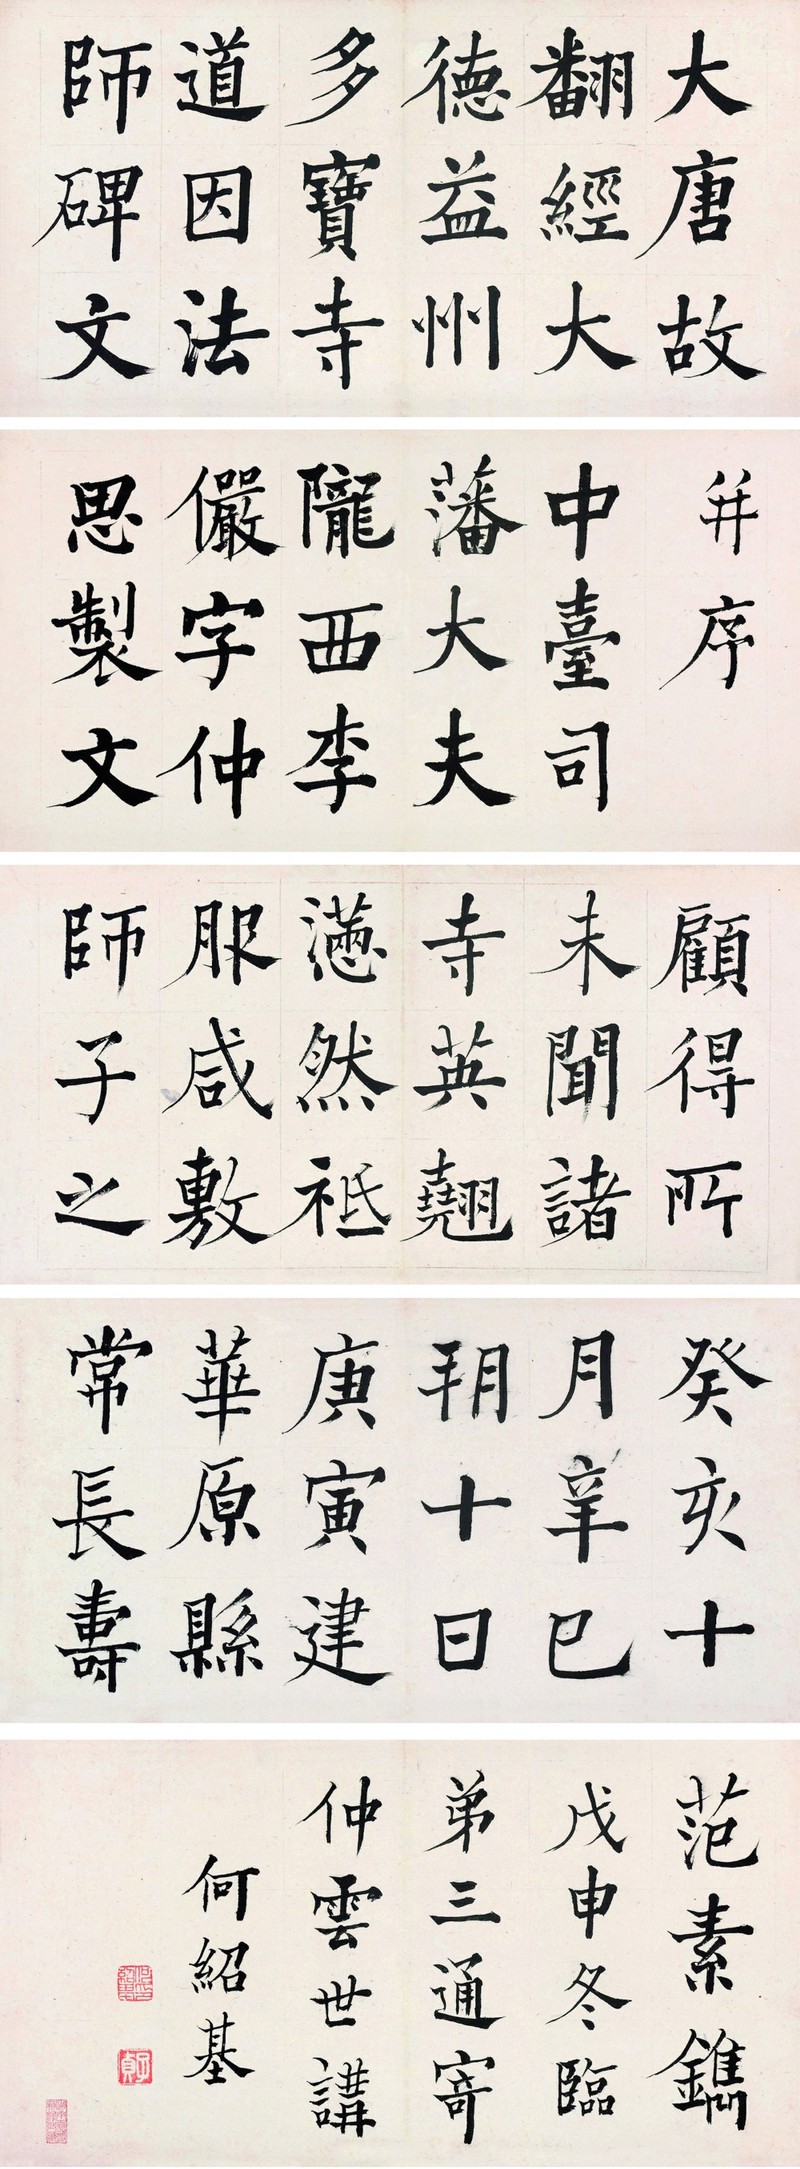 大唐故
翻經大
德益州
多寶寺
道因法
師碑文
并序
中臺司
藩大夫
隴西李
儼字仲
思製文
顧得所
未聞諸
寺英翹
懣然祗
服咸敷
師子之
癸亥十
月辛巳
朔十日
庚寅建
華原縣
常長壽
范素鐫
戊申冬臨
弟三通寄
仲雲世講
何紹基
子貞